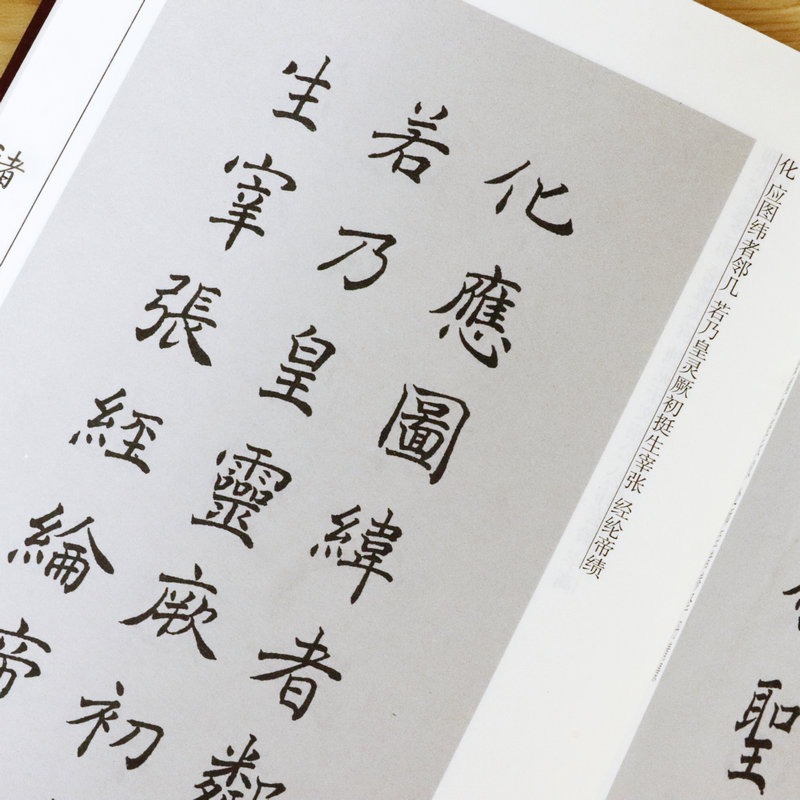 聖
化 应图纬者邻几 若乃皇灵厥初挺生宰张 经纶帝绩
化應圖緯者鄰
若乃皇靈厥初
生宰張經綸帝